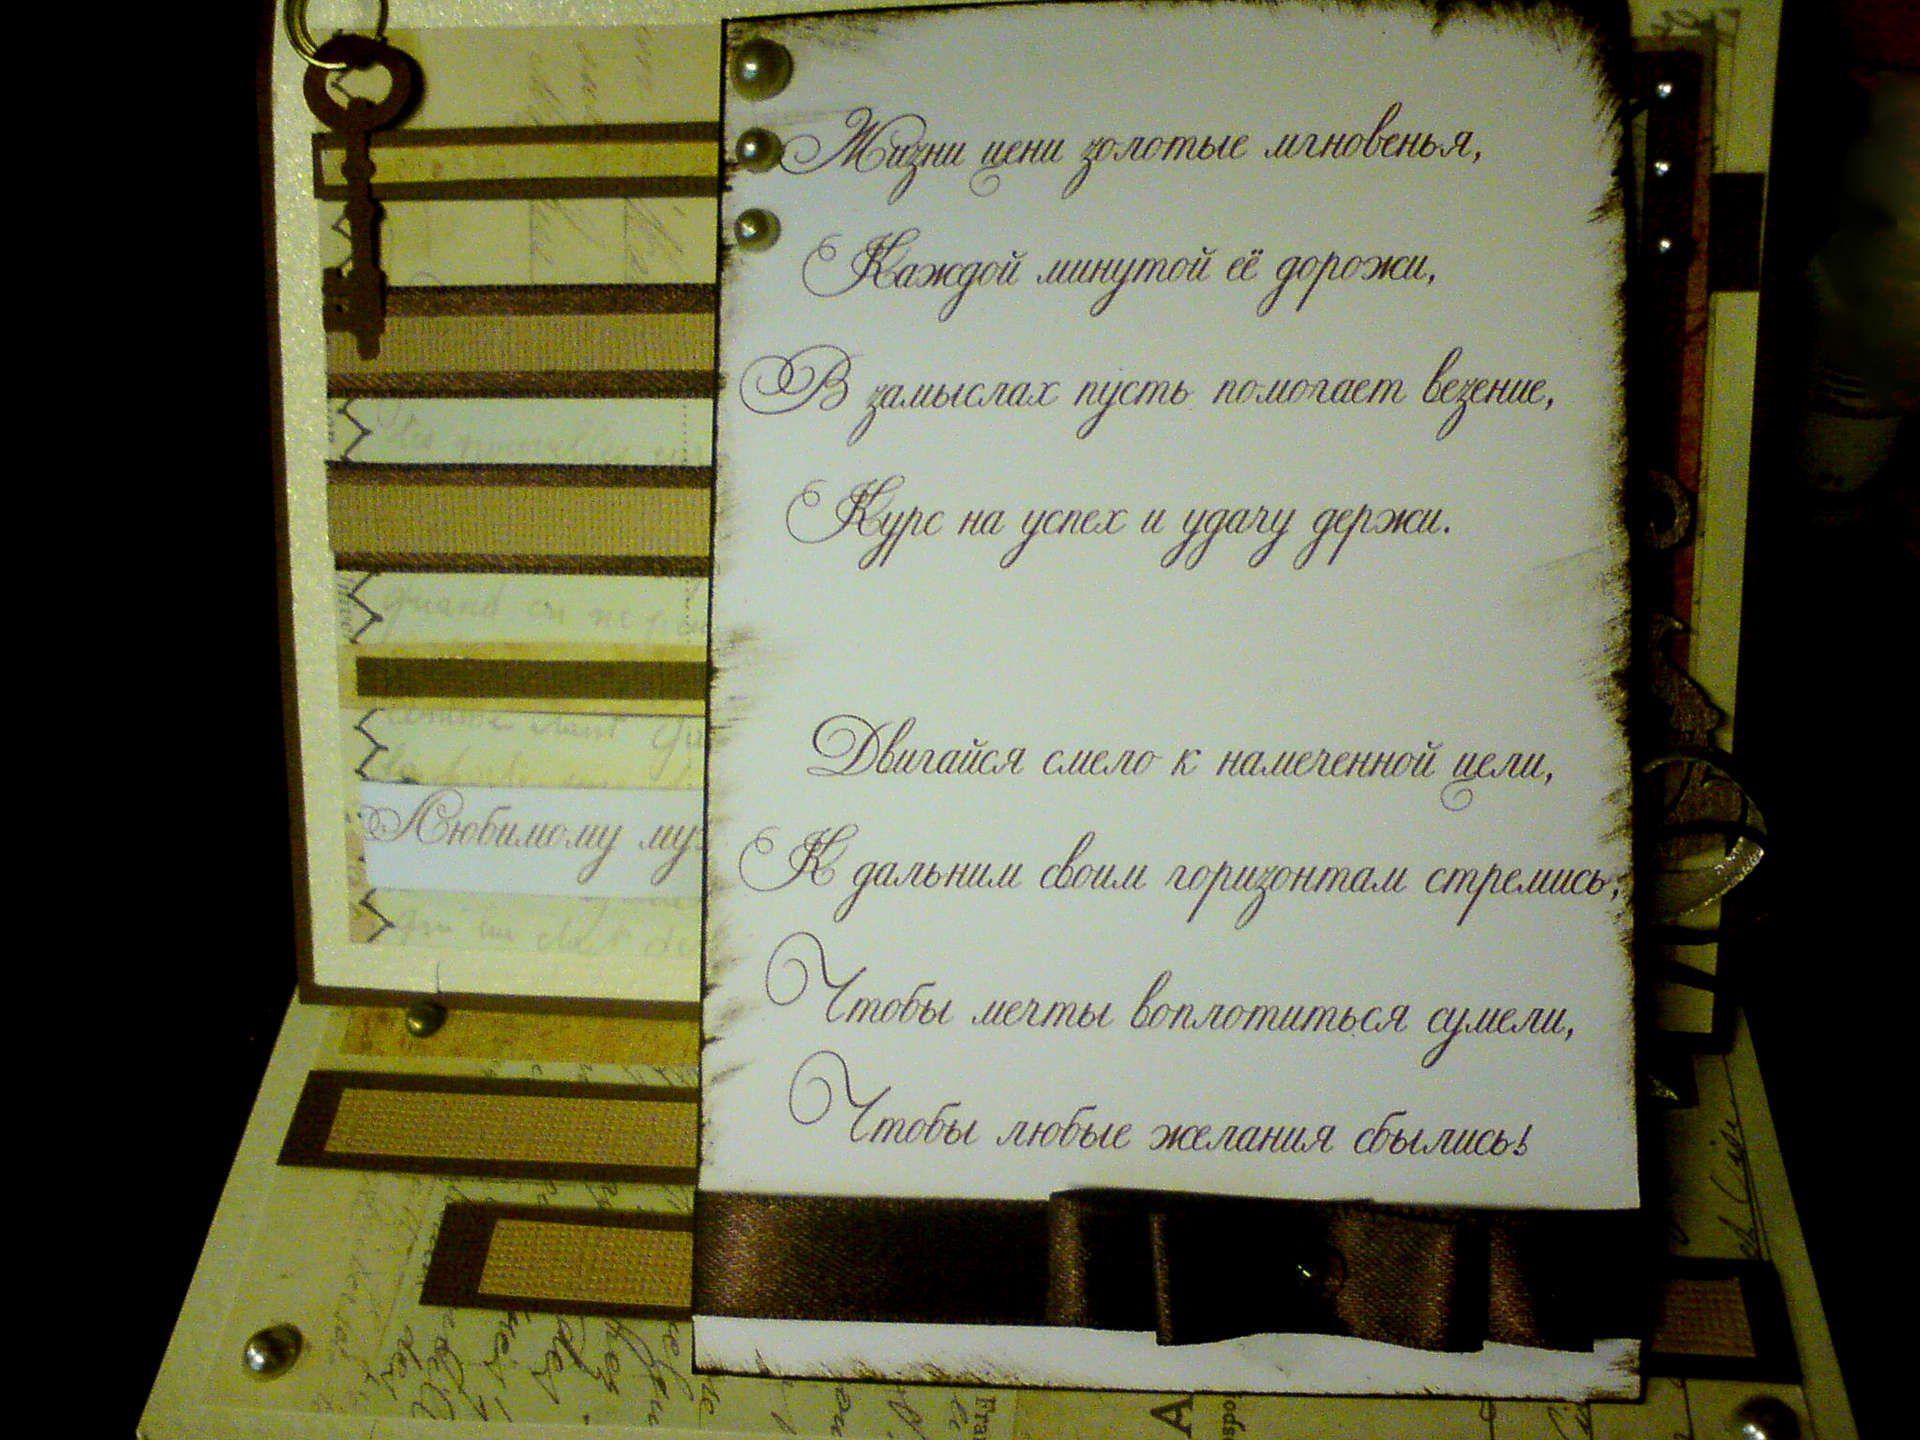 Жизни цени золотые мгновенья,
Каждой минутой её дорожи,
В замыслах пусть помогает везение,
Курс на успех и удачу держи.
Двигайся смело к намеченной цели,
К дальним своим горизонтам стремись,
Чтобы мечты воплотиться сумели,
Чтобы любые желания сбылись!
Любимому
quand on ne
qui
A